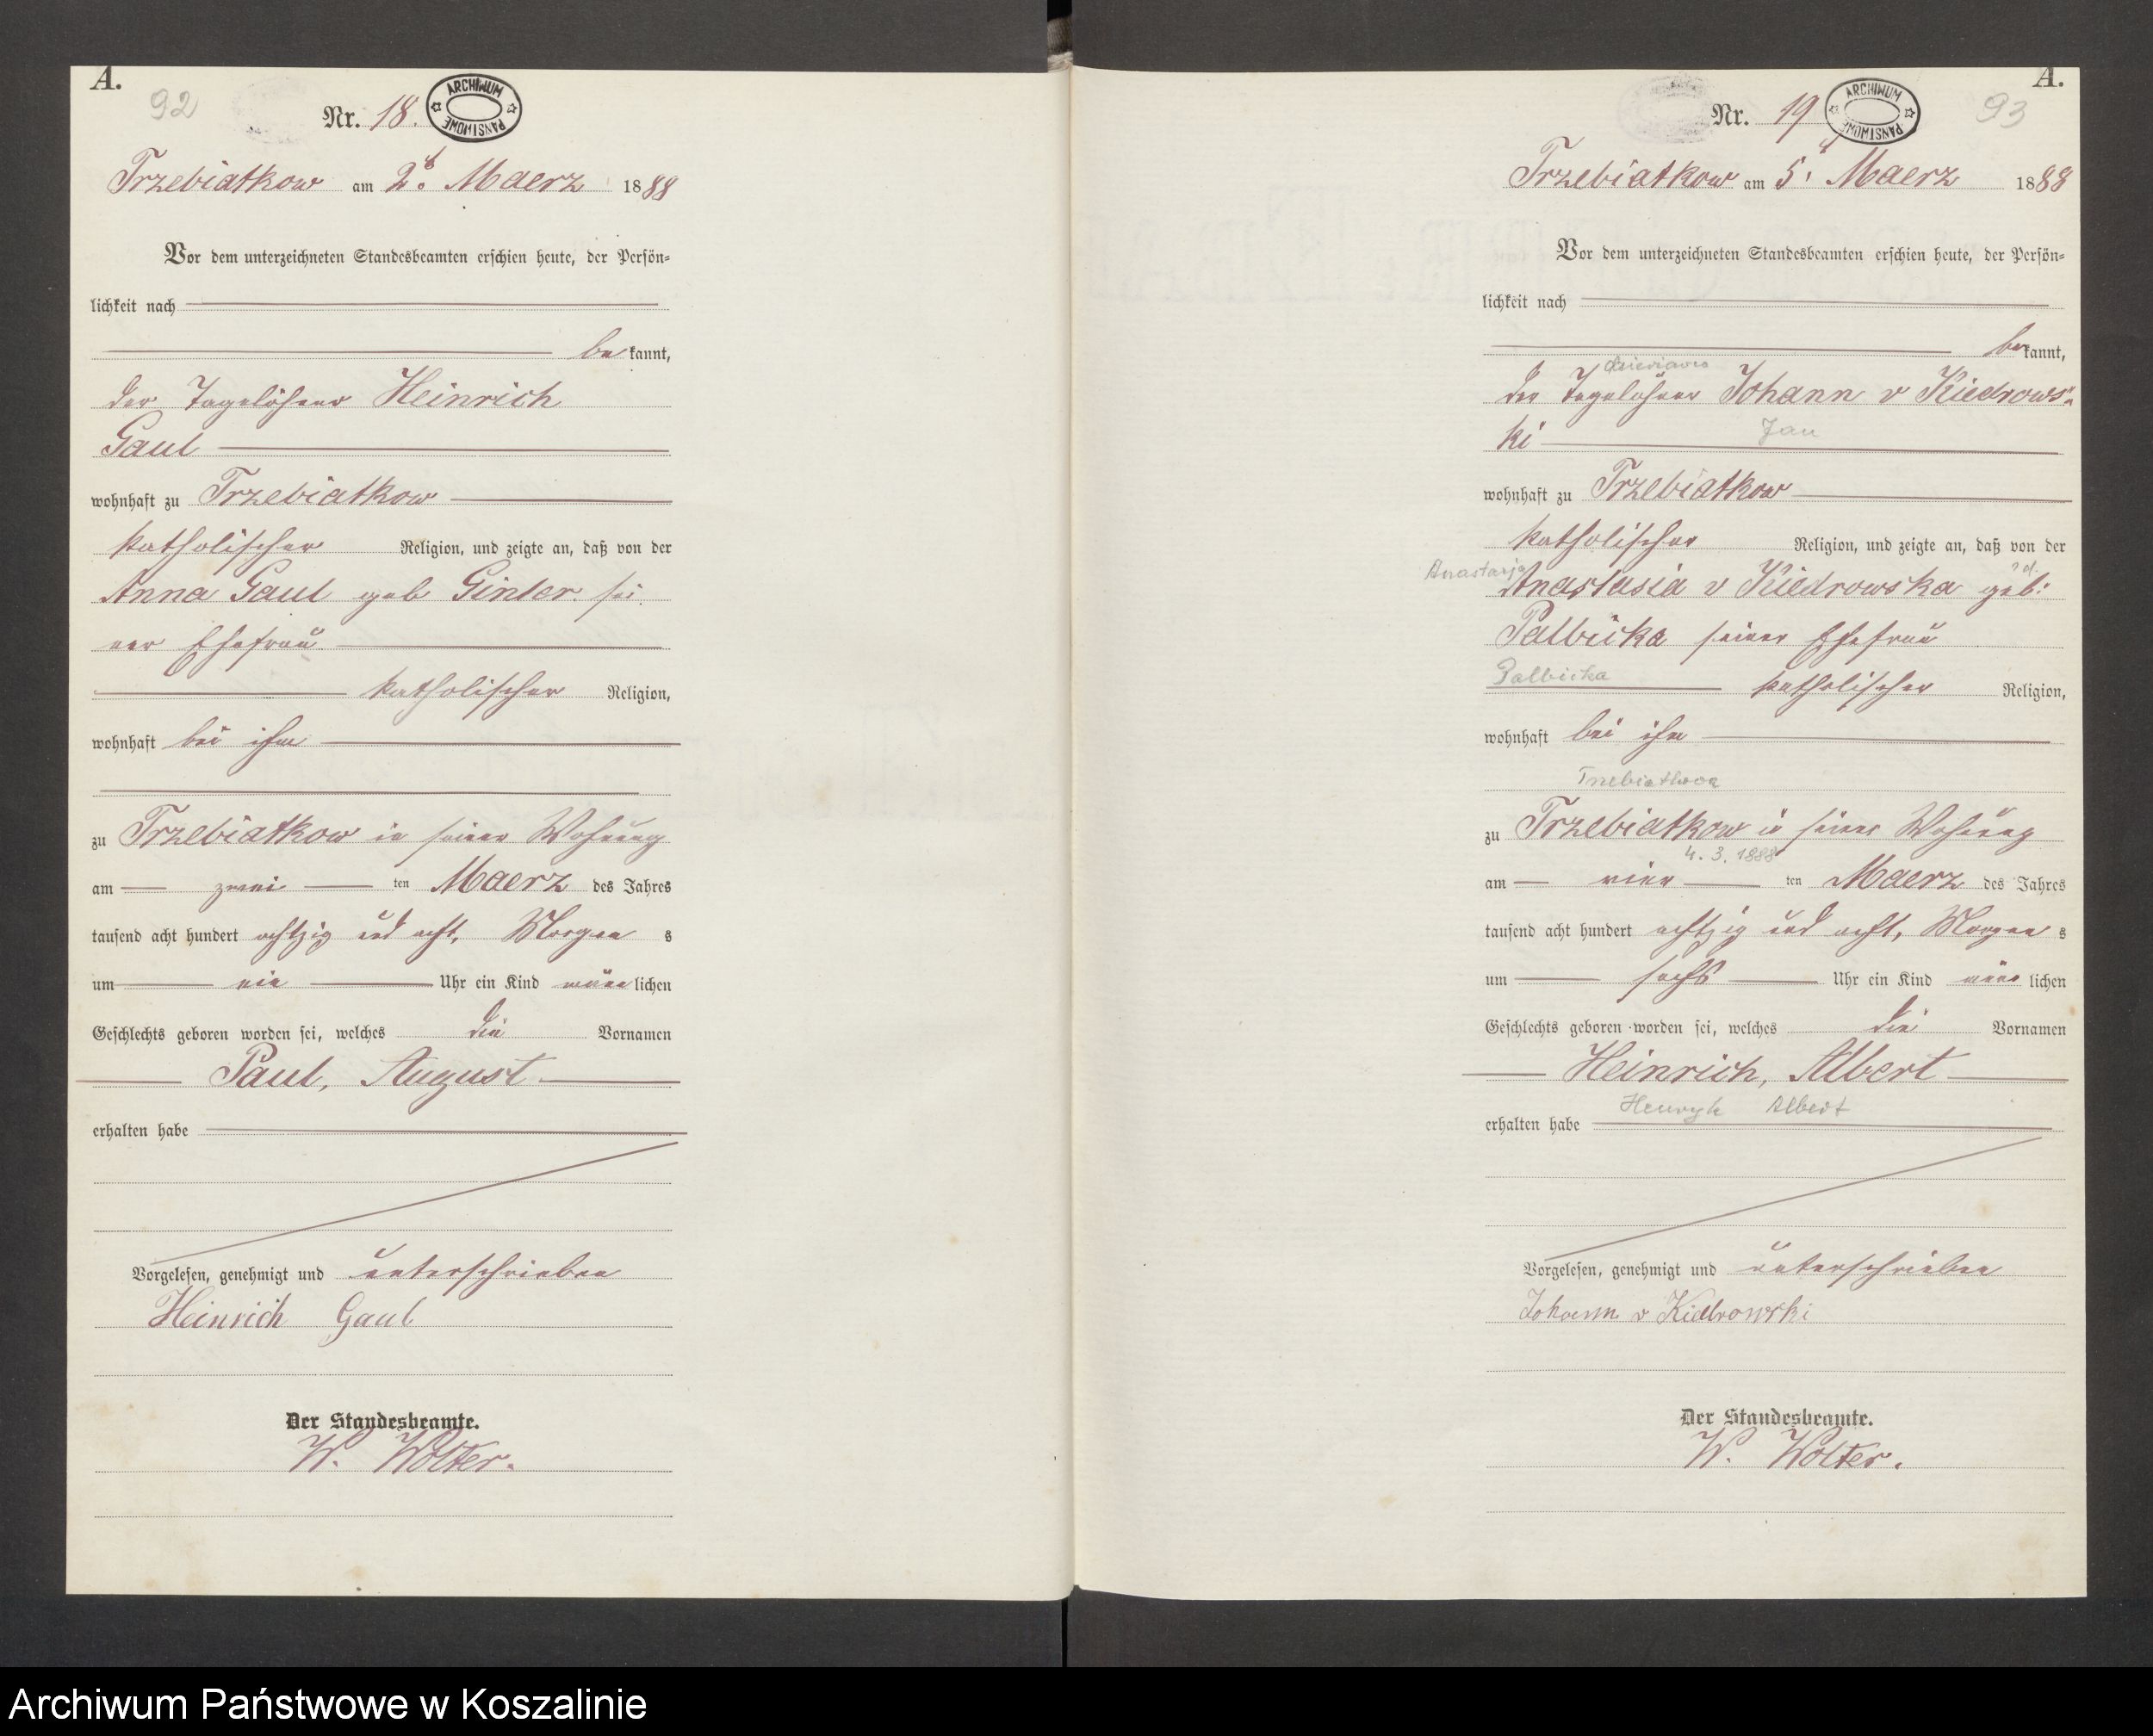 A.
92
Nr. 18.
ARCHIWUM PAŃSTWOWE
Trzebiatkow am 2t. Maerz 1888
Vor dem unterzeichneten Standesbeamten erschien heute, der Persön-
lichkeit nach
be kannt,
der Tagelöhner Heinrich
Gaul
wohnhaft zu Trzebiatkow
katholischer Religion, und zeigte an, daß von der
Anna Gaul geb Ginter sei
ner Ehefrau
katholischer Religion,
wohnhaft bei ihm
zu Trzebiatkow in seiner Wohnung
am zwei ten Maerz des Jahres
tausend acht hundert achtzig und acht, Morgen s
um ein Uhr ein Kind männ lichen
Geschlechts geboren worden sei, welches die Vornamen
Paul, August
erhalten habe
Vorgelesen, genehmigt und unterschrieben
Heinrich Gaul
Der Standesbeamte.
W. Wolter.
A.
93
Nr. 19
ARCHIWUM PAŃSTWOWE
Trzebiatkow am 5t Maerz 1888
Vor dem unterzeichneten Standesbeamten erschien heute, der Persön-
lichkeit nach
be kannt,
der Tagelöhner Johann v Kiedrows-
ki Jan
wohnhaft zu Trzebiatkow
katholischer Religion, und zeigte an, daß von der
Anastazja Anastasia v Kiedrowska geb:
Palbicka seiner Ehefrau
Palbicka katholischer Religion,
wohnhaft bei ihm
zu Trzebiatkow in seiner Wohnung
4. 3. 1888
am vier ten Maerz des Jahres
tausend acht hundert achtzig und acht, Morgen s
um sechs Uhr ein Kind männ lichen
Geschlechts geboren worden sei, welches die Vornamen
Heinrich, Albert
Henryk Albert
erhalten habe
Vorgelesen, genehmigt und unterschrieben
Johann v Kiedrowski
Der Standesbeamte.
W. Wolter.
Archiwum Państwowe w Koszalinie